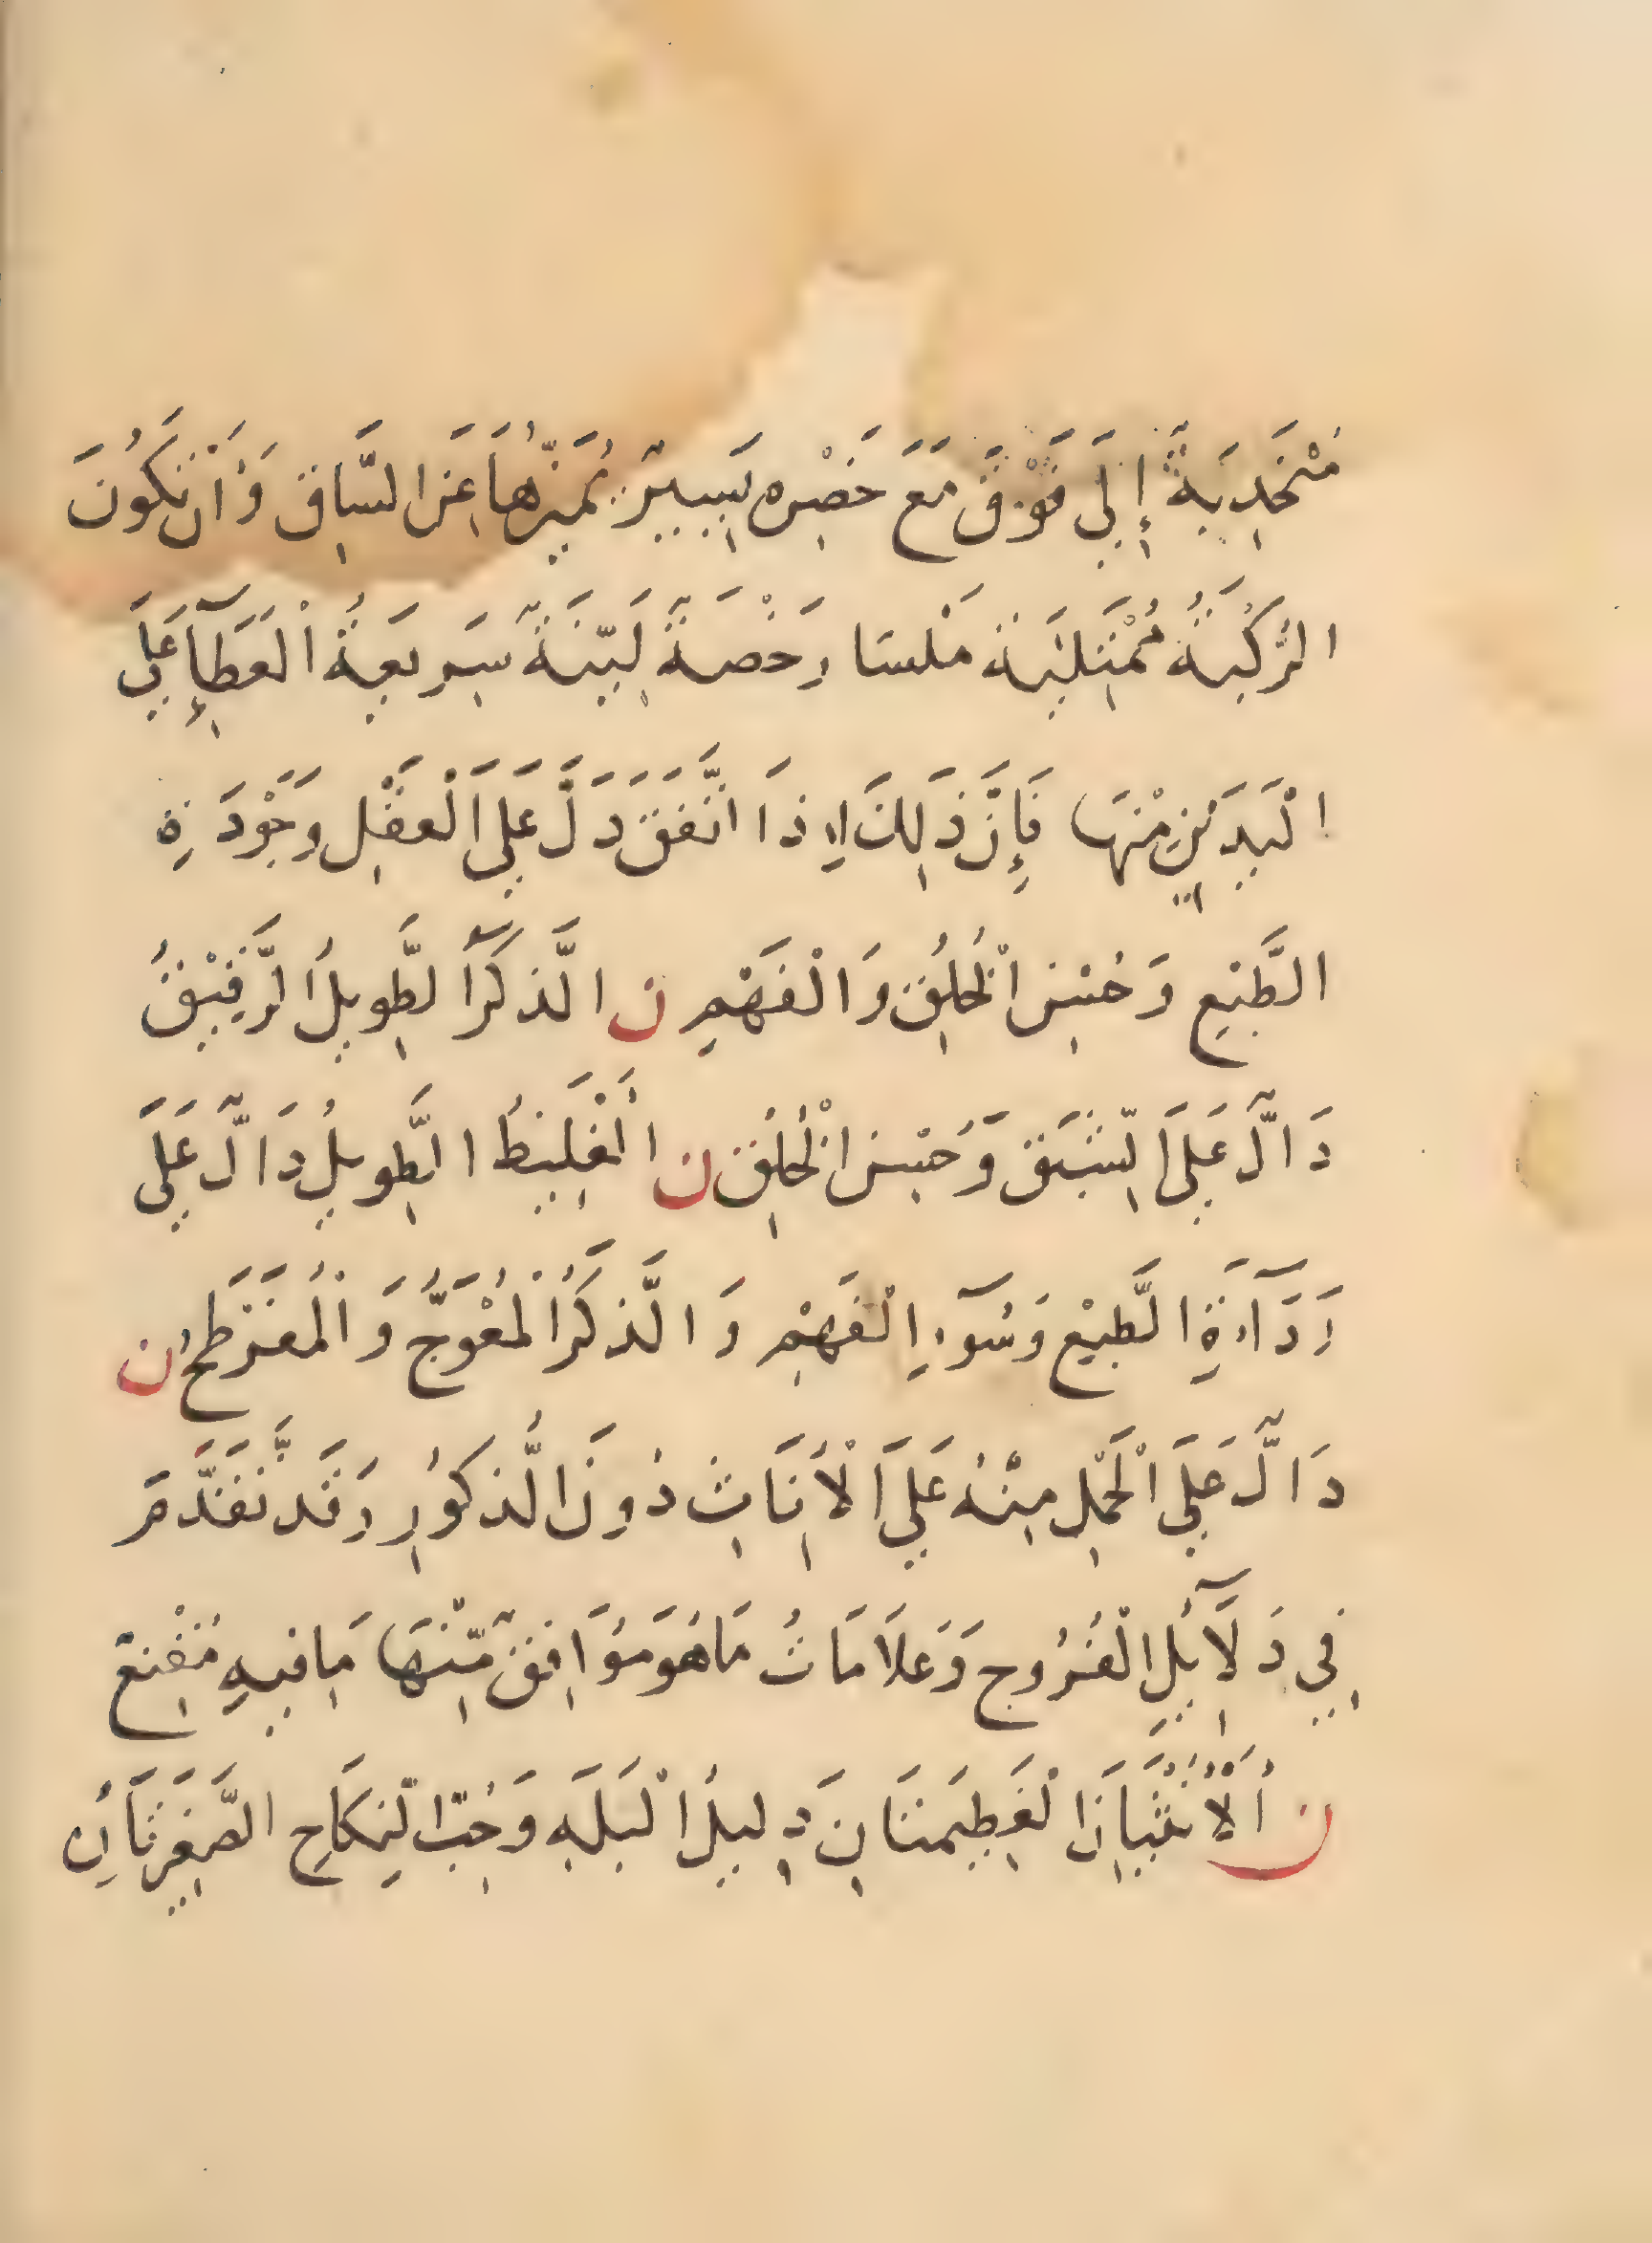 مُنْجَذِبَةً إِلَى فَوْقَ مَعَ خَصْرِه يَسِيرٍ يُمَيِّزُهَا عَنَ السَّاقِ وَأَنْ تَكُونَ
الرُّكْبَةُ مُمْتَلِئَة مَلْسَا رَخْصَةً لَيِّنَةً سَرِيعَةُ الْعَطَآءِ عَلَى
الْيَدَيْنِ مِنْهَا فَإِنَّ ذَلِكَ اِذَا اتَّفَقَ دَلَّ عَلَى الْعَقْلِ وَجَوْدَةِ
الطَّبْعِ وَحُسْنِ الْخُلُقِ وَالْفَهْمِ ن الذَّكَرُ الطَّوِيلُ الرَّقِيْقُ
دَالٌّ عَلَى الشَّبَقِ وَحُسْنِ الْخُلُقِ ن الْغَلِيظُ الطَّوِيلُ دَالٌّ عَلَى
رَدَآءَةِ الطَّبْعِ وَسُوٓءِ الْفَهْمِ وَالذَّكَرُ الْمُعْوَجُّ وَالْمُفَرْطَحُ ن
دَالٌّ عَلَى الْحَمْلِ مِنْهُ عَلَى الْأِنَاثِ دُونَ الذُّكُورِ وَقَد تَقَدَّمَ
فِي دَلَآئِلِ الْفُرُوجِ وَعَلَامَاتُ مَا هُوَ مُوَافِقٌ مِّنْهَا مَا فِيهِ مُقْنِعٌ
ن اَلْأُنْثَيَانِ الْعَظِيمَتَانِ دَلِيلُ الْبَلَهِ وَحُبِّ النِّكَاحِ الصَّغِيرَتَانِ